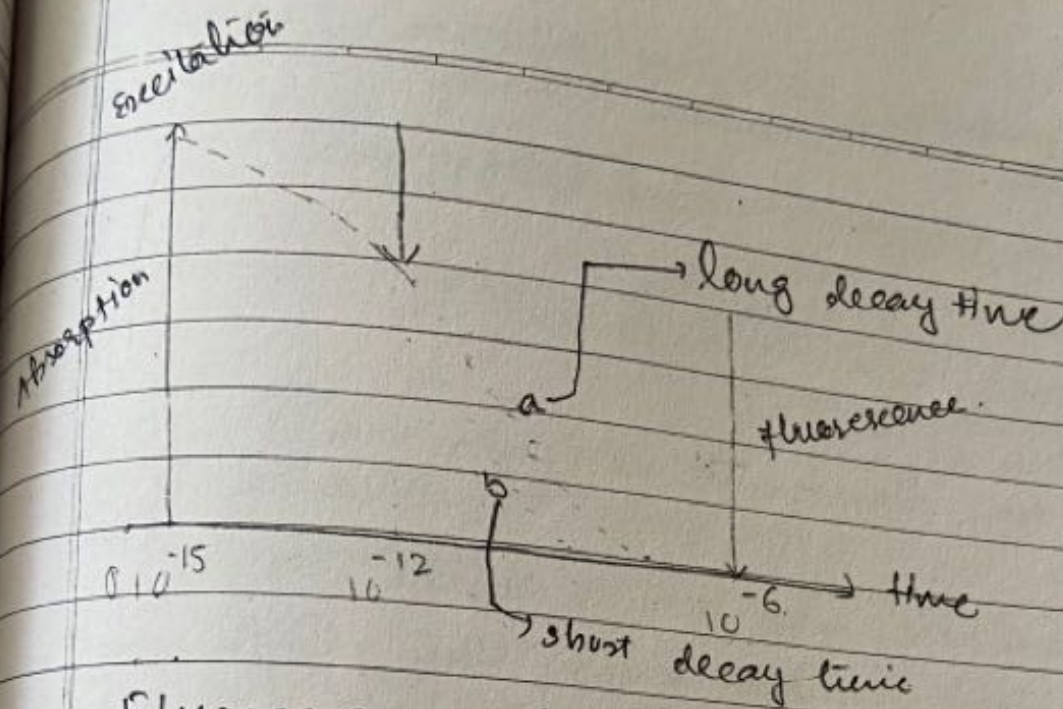 Excitation
Absorption
long decay time
a
fluorescence.
b
0 10^-15
10^-12
10^-6
time
short decay time